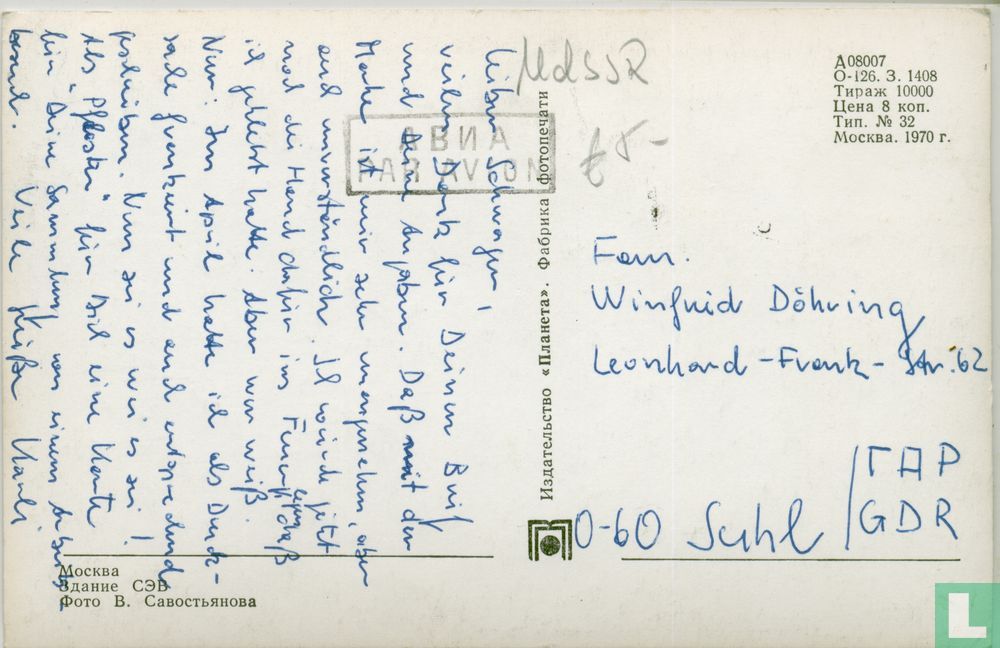 Lieber Schwager!
vielen Dank für Deinen Brief
und Deine Angaben. Daß mit der
Marke ist mir sehr unangenehm, aber
auch unverständlich. Ich würde jetzt
noch die Hand dafür ins Feuer legen, daß
ich geklebt hatte. Aber wer weiß.
Nun: Im April hatte ich als Druck-
sache frankiert und auch entsprechend
geschrieben. Nun sei es wie es sei!
Als "Pflaster" für Dich eine Karte
für Deine Sammlung von einem
Viele Grüße
UdSSR
5-
АВИА
PAR AVION
Издательство «Планета». Фабрика фотопечати
Д08007
О-126. З. 1408
Тираж 10000
Цена 8 коп.
Тип. № 32
Москва. 1970 г.
Fam.
Winfried Döhring
Leonhard-Frank-Str. 62
0-60 Suhl
ГДР
GDR
Москва
Здание СЭВ
Фото В. Савостьянова
L